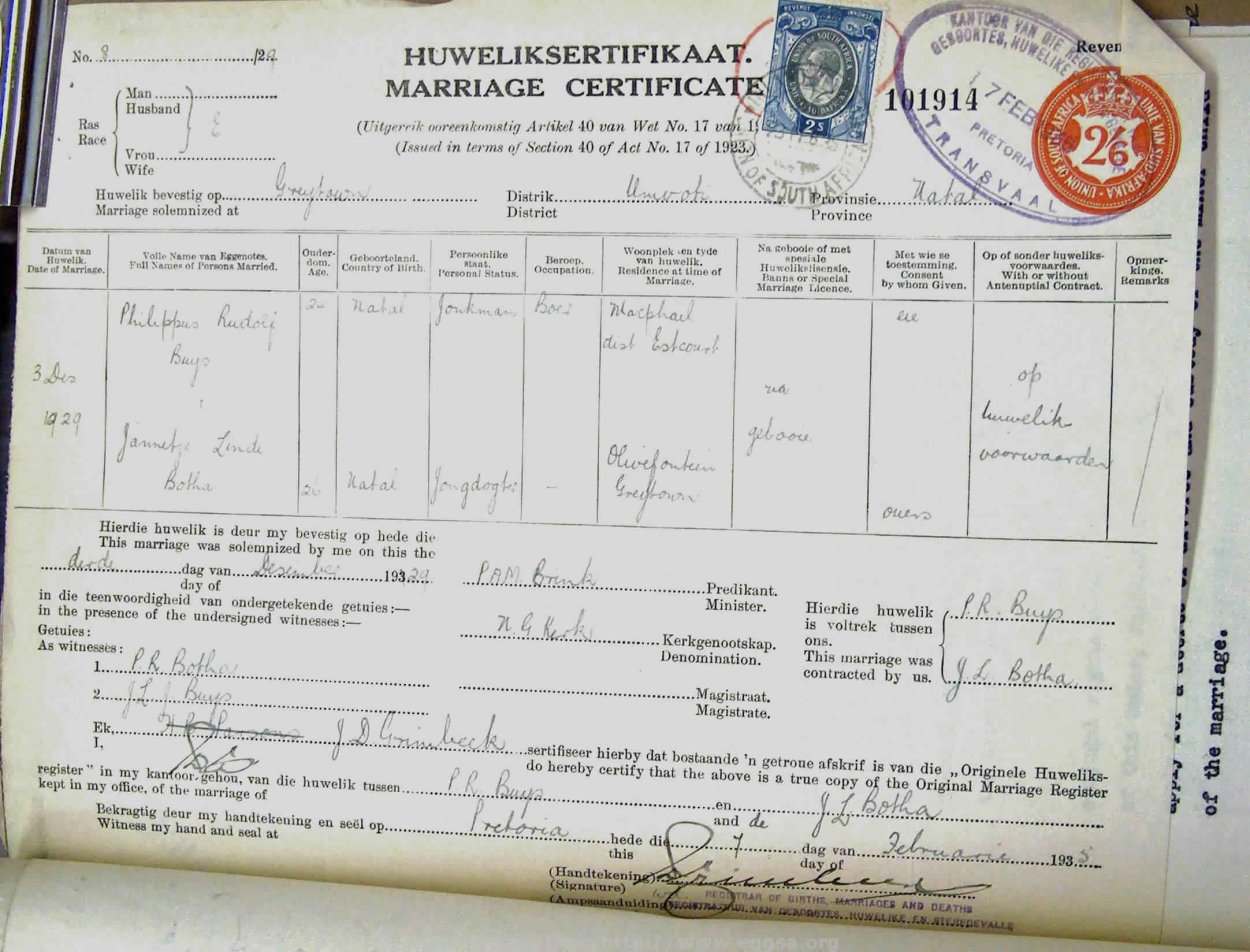 No. 8 /29
HUWELIKSERTIFIKAAT.
MARRIAGE CERTIFICATE
(Uitgereik ooreenkomstig Artikel 40 van Wet No. 17 van 19
(Issued in terms of Section 40 of Act No. 17 of 1923.)
REVENUE INKOMSTE
UNION OF SOUTH AFRICA
2s
101914
Reven
KANTOOR VAN DIE REGI
GEBOORTES, HUWELIKE
7 FEB
PRETORIA
TRANSVAAL
UNION OF SOUTH AFRICA · UNIE VAN SUID-AFRIKA
2/6
Ras
Race
Man
Husband
E
Vrou
Wife
Huwelik bevestig op Greytown Distrik Umvoti Provinsie Natal
Marriage solemnized at District Province
Datum van Huwelik. Date of Marriage.
Volle Name van Eggenotes. Full Names of Persons Married.
Ouderdom. Age.
Geboorteland. Country of Birth.
Persoonlike staat. Personal Status.
Beroep. Occupation.
Woonplek ten tyde van huwelik. Residence at time of Marriage.
Na gebooie of met spesiale Huwelikslisensie. Banns or Special Marriage Licence.
Met wie se toestemming. Consent by whom Given.
Op of sonder huweliksvoorwaardes. With or without Antenuptial Contract.
Opmerkinge. Remarks
3 Des 1929
Philippus Rudolf Buys 24 Natal Jonkman Boer Macphail dist Estcourt eie
na gebooie
op huwelik voorwaarden
Jannetje Linde Botha 26 Natal Jongdogter – Olivefontein Greytown ouers
Hierdie huwelik is deur my bevestig op hede die
This marriage was solemnized by me on this the
derde dag van Desember 19329
day of
in die teenwoordigheid van ondergetekende getuies:—
in the presence of the undersigned witnesses:—
Getuies:
As witnesses:
1. P.R. Botha
2. J L J Buys
P A M Brink Predikant.
Minister.
N. G. Kerk Kerkgenootskap.
Denomination.
Magistraat.
Magistrate.
Hierdie huwelik is voltrek tussen ons.
This marriage was contracted by us.
P. R. Buys
J. L. Botha
Ek, J D Grimbeek sertifiseer hierby dat bostaande 'n getroue afskrif is van die „Originele Huweliks-
I, do hereby certify that the above is a true copy of the Original Marriage Register
register" in my kantoor gehou, van die huwelik tussen P. R. Buys en J L Botha
kept in my office, of the marriage of and de
Bekragtig deur my handtekening en seël op Pretoria hede die 7 dag van Februarie 1935
Witness my hand and seal at this day of
(Handtekening)
(Signature)
(Ampsaanduiding)
REGISTRAR OF BIRTHS, MARRIAGES AND DEATHS
REGISTRATEUR VAN GEBOORTES, HUWELIKE EN STERFGEVALLE
of the marriage.
http://www.eggsa.org